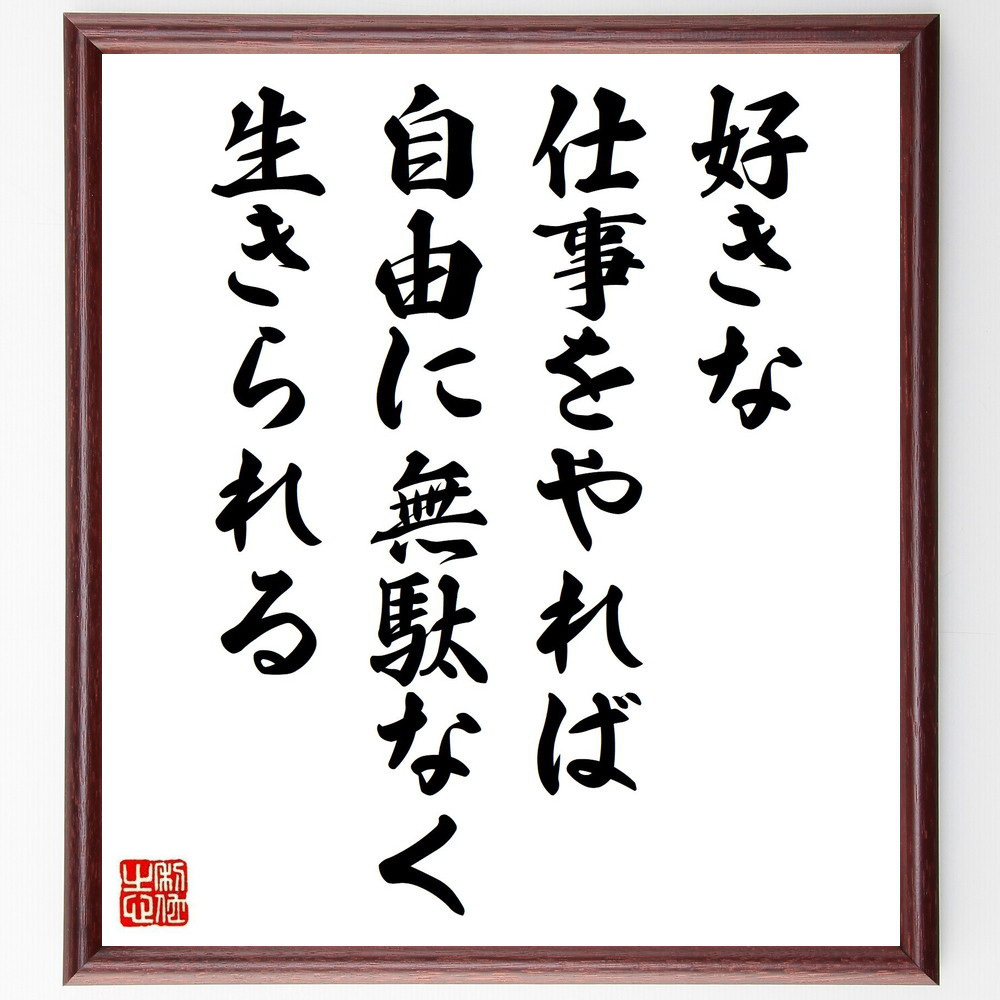 好きな
仕事をやれば
自由に無駄なく
生きられる